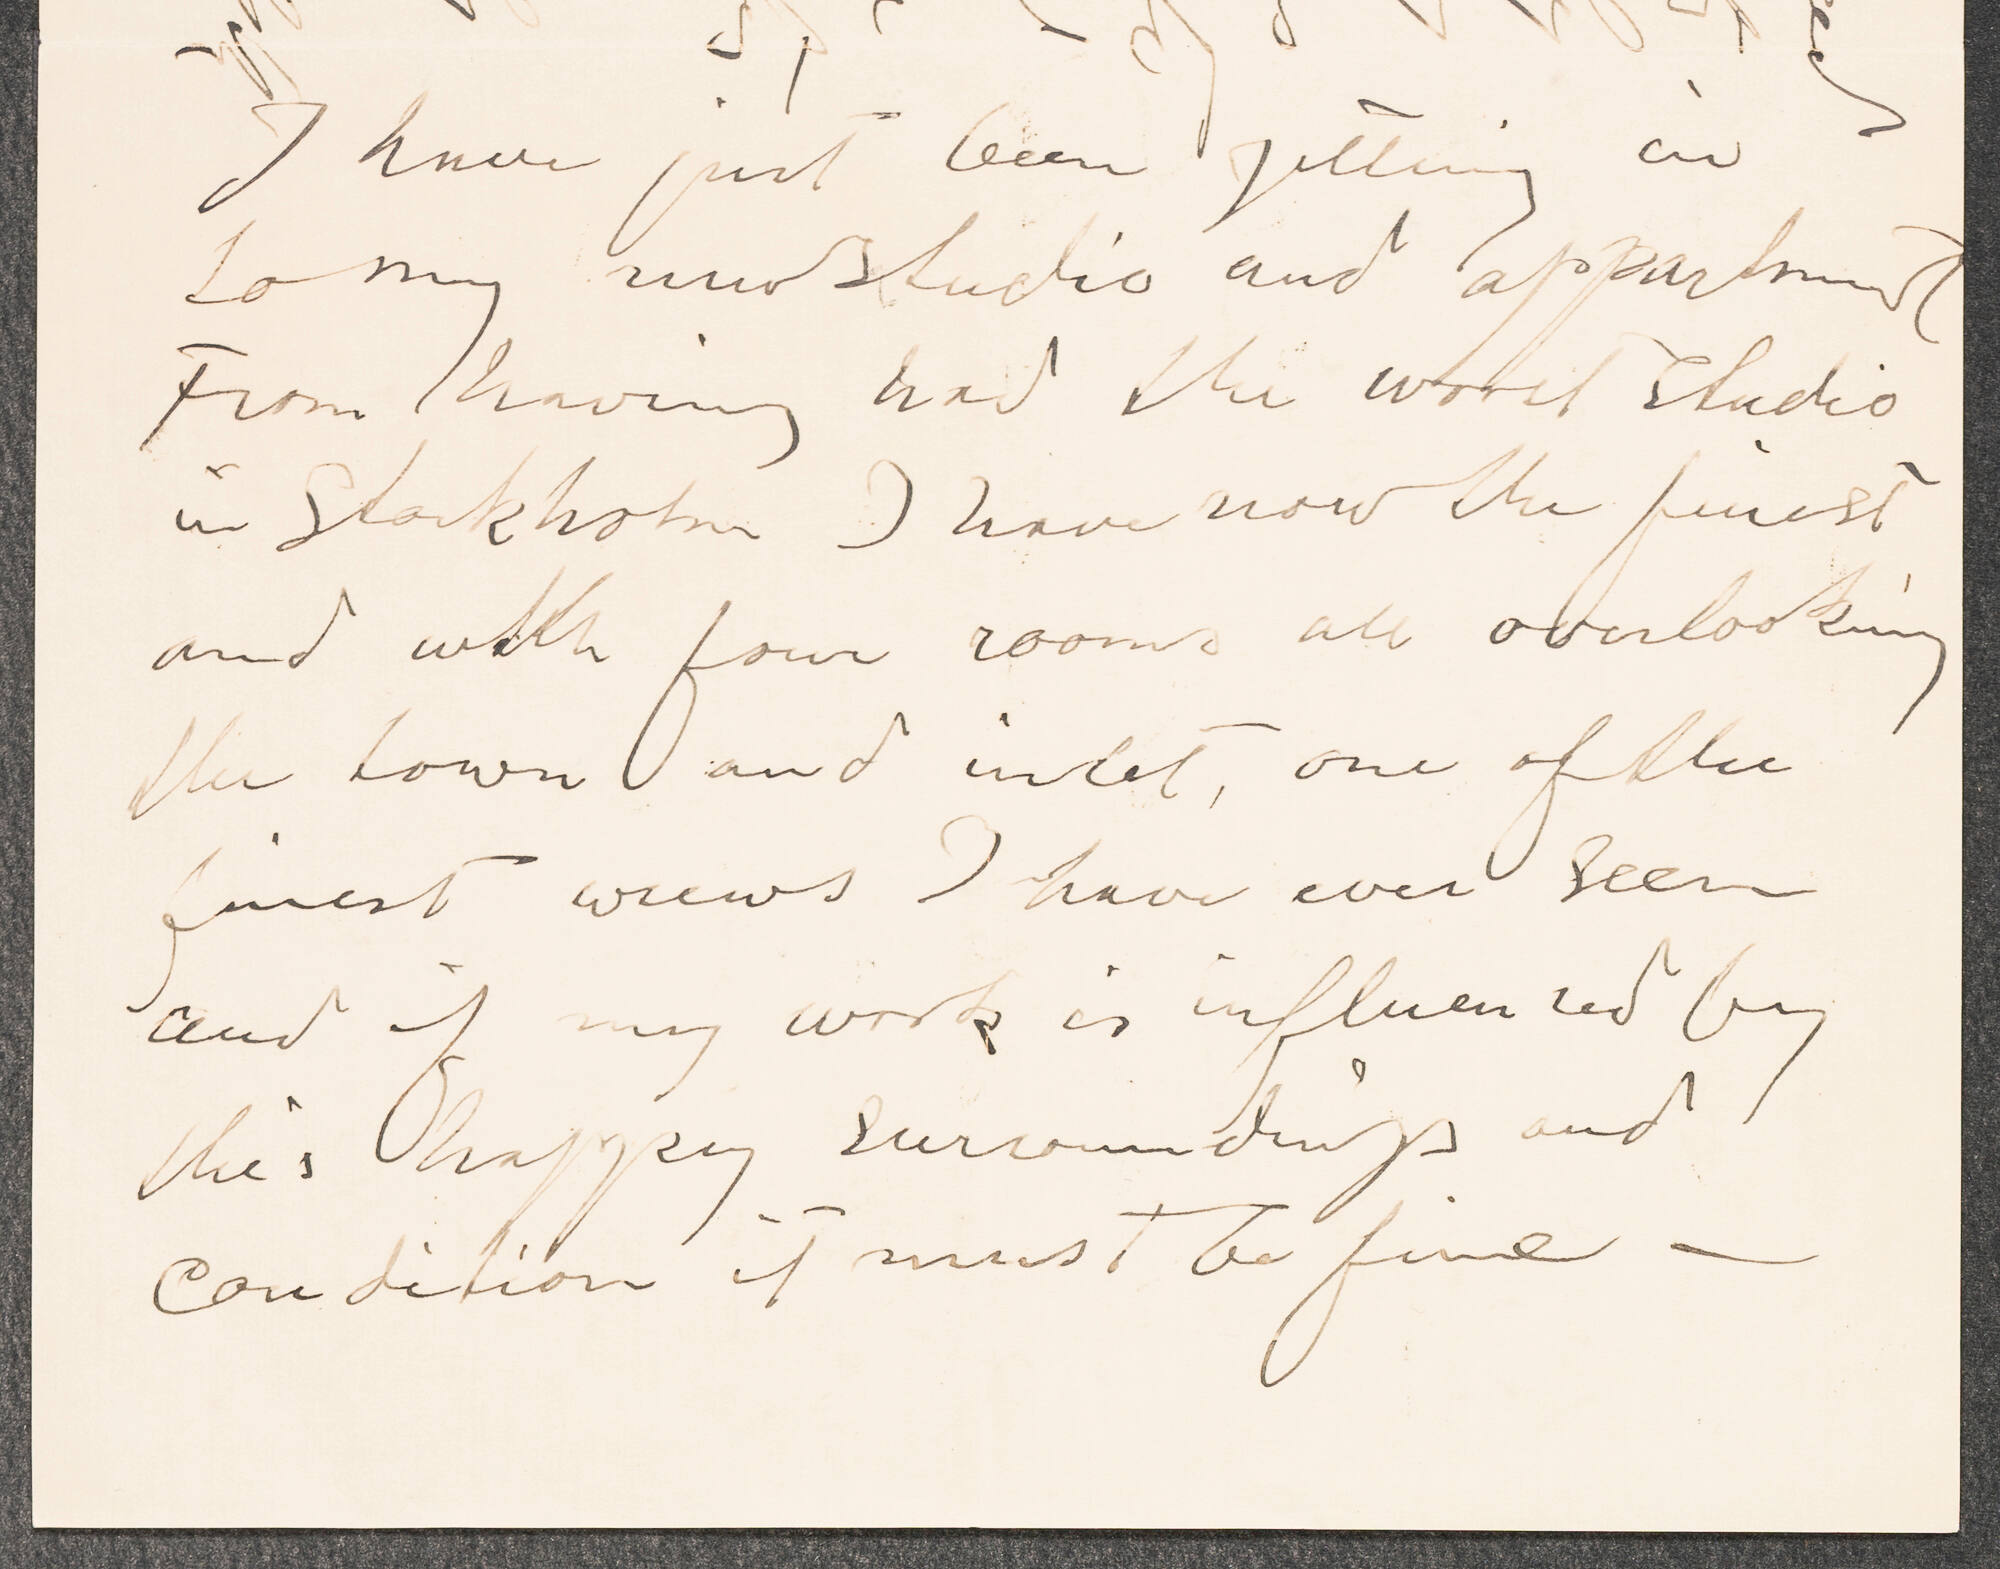 I have just been getting in
to my new studio and appartment
From having had the worst studio
in Stockholm I have now the finest
and with four rooms all overlooking
the town and inlet, one of the
finest wiews I have ever seen
and if my work is influenced by
this happy surroundings and
Condition it must be fine —